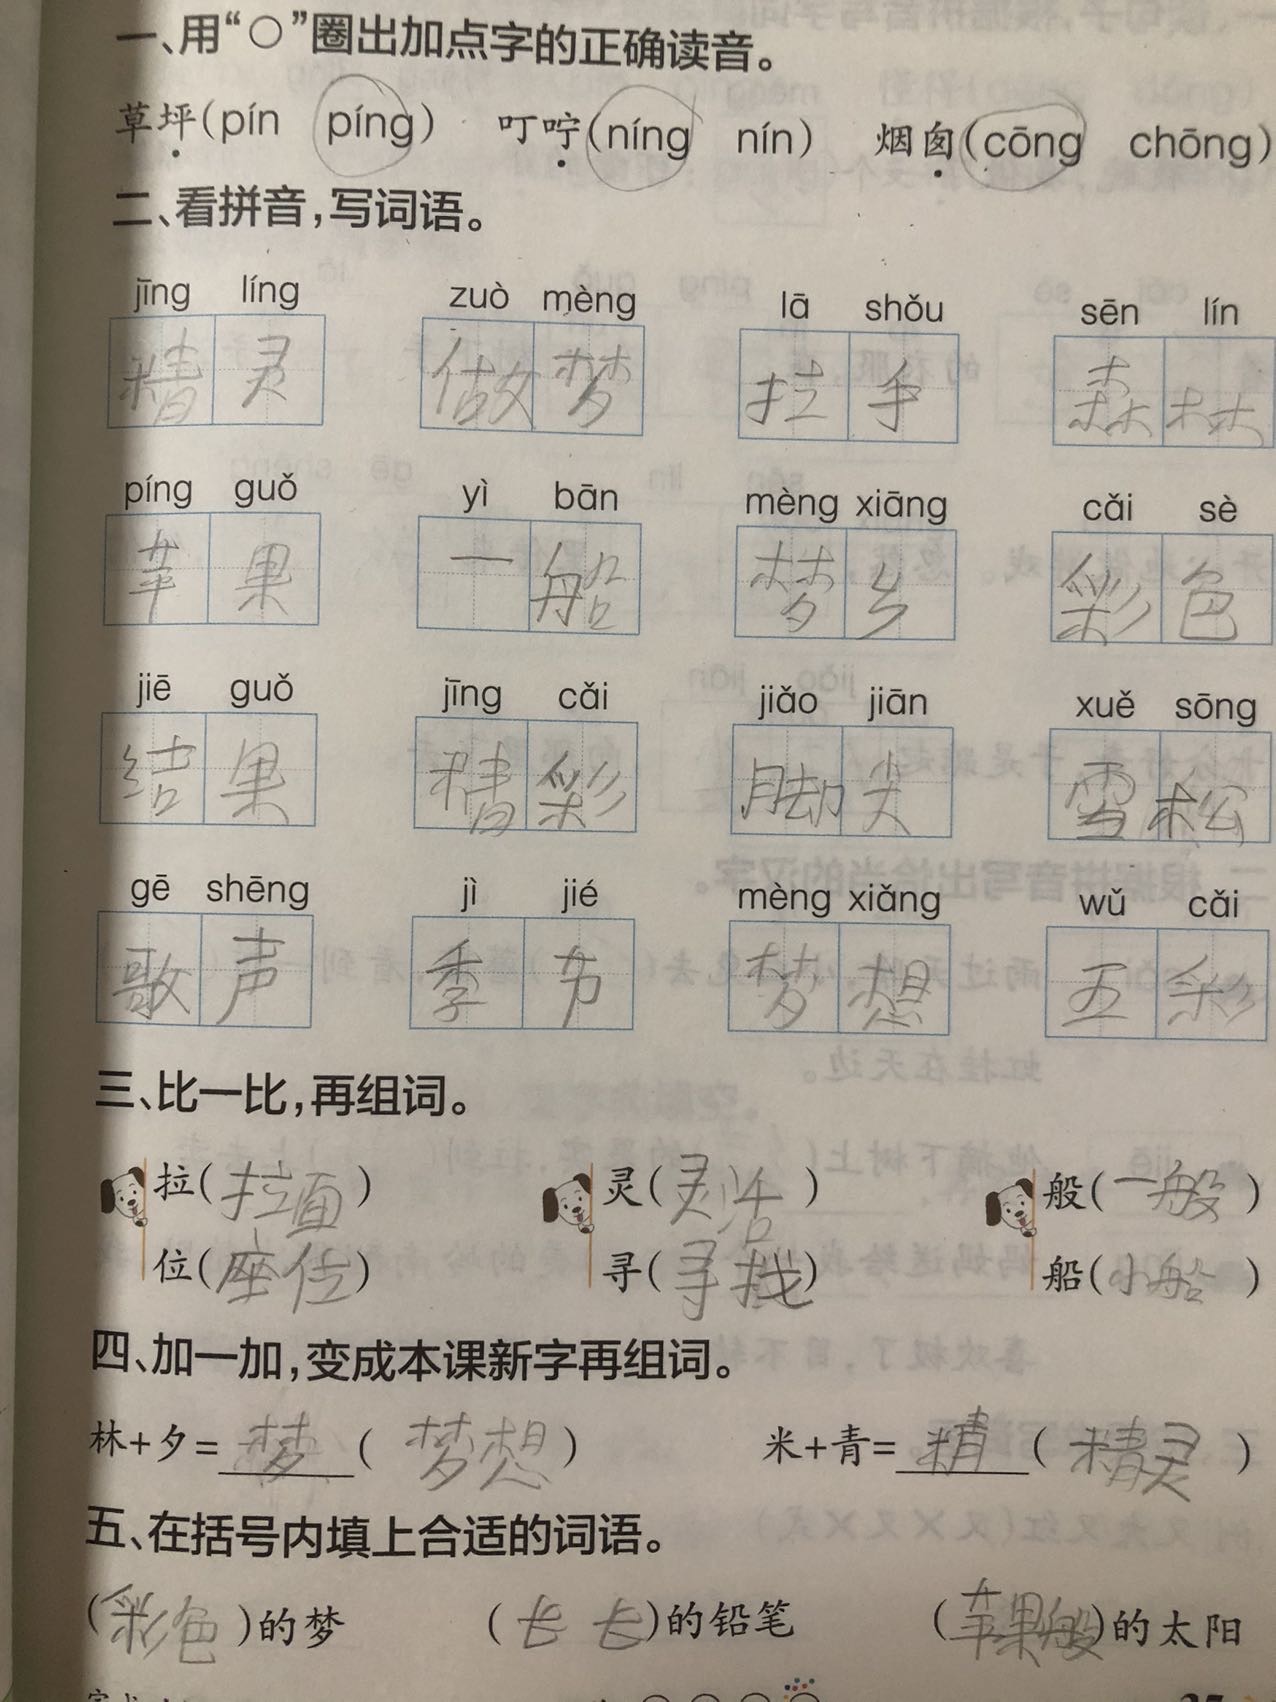 一、用“○”圈出加点字的正确读音。
草坪(pín píng) 叮咛(níng nín) 烟囱(cōng chōng)
二、看拼音,写词语。
jīng líng zuò mèng lā shǒu sēn lín
精灵 做梦 拉手 森林
píng guǒ yì bān mèng xiāng cǎi sè
苹果 一船 梦乡 彩色
jiē guǒ jīng cǎi jiǎo jiān xuě sōng
结果 精彩 脚尖 雪松
gē shēng jì jié mèng xiǎng wǔ cǎi
歌声 季节 梦想 五彩
三、比一比,再组词。
拉(拉面) 灵(灵活) 般(一般)
位(座位) 寻(寻找) 船(小船)
四、加一加,变成本课新字再组词。
林+夕=梦(梦想) 米+青=精(精灵)
五、在括号内填上合适的词语。
(彩色)的梦 (长长)的铅笔 (苹果般)的太阳